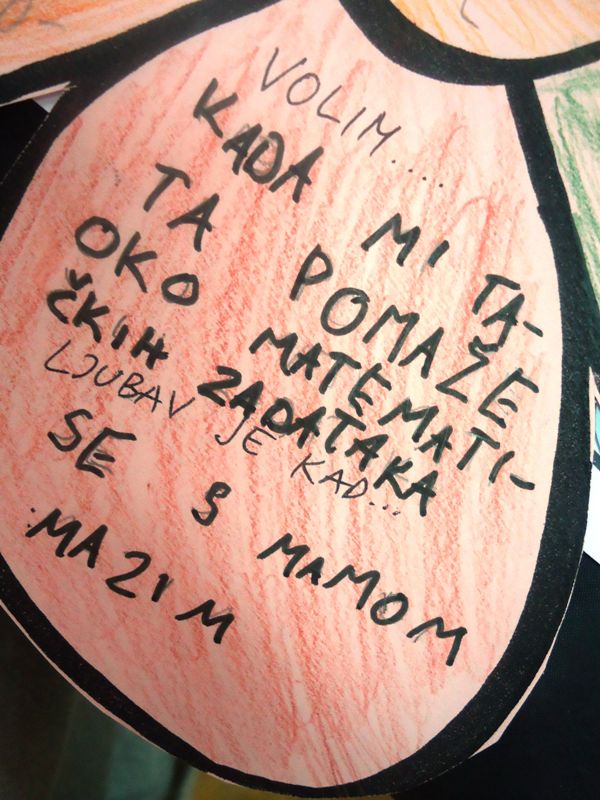 VOLIM.....
KADA MI TA-
TA POMAŽE
OKO MATEMATI-
ČKIH ZADATAKA
LJUBAV JE KAD...
SE S MAMOM
MAZIM